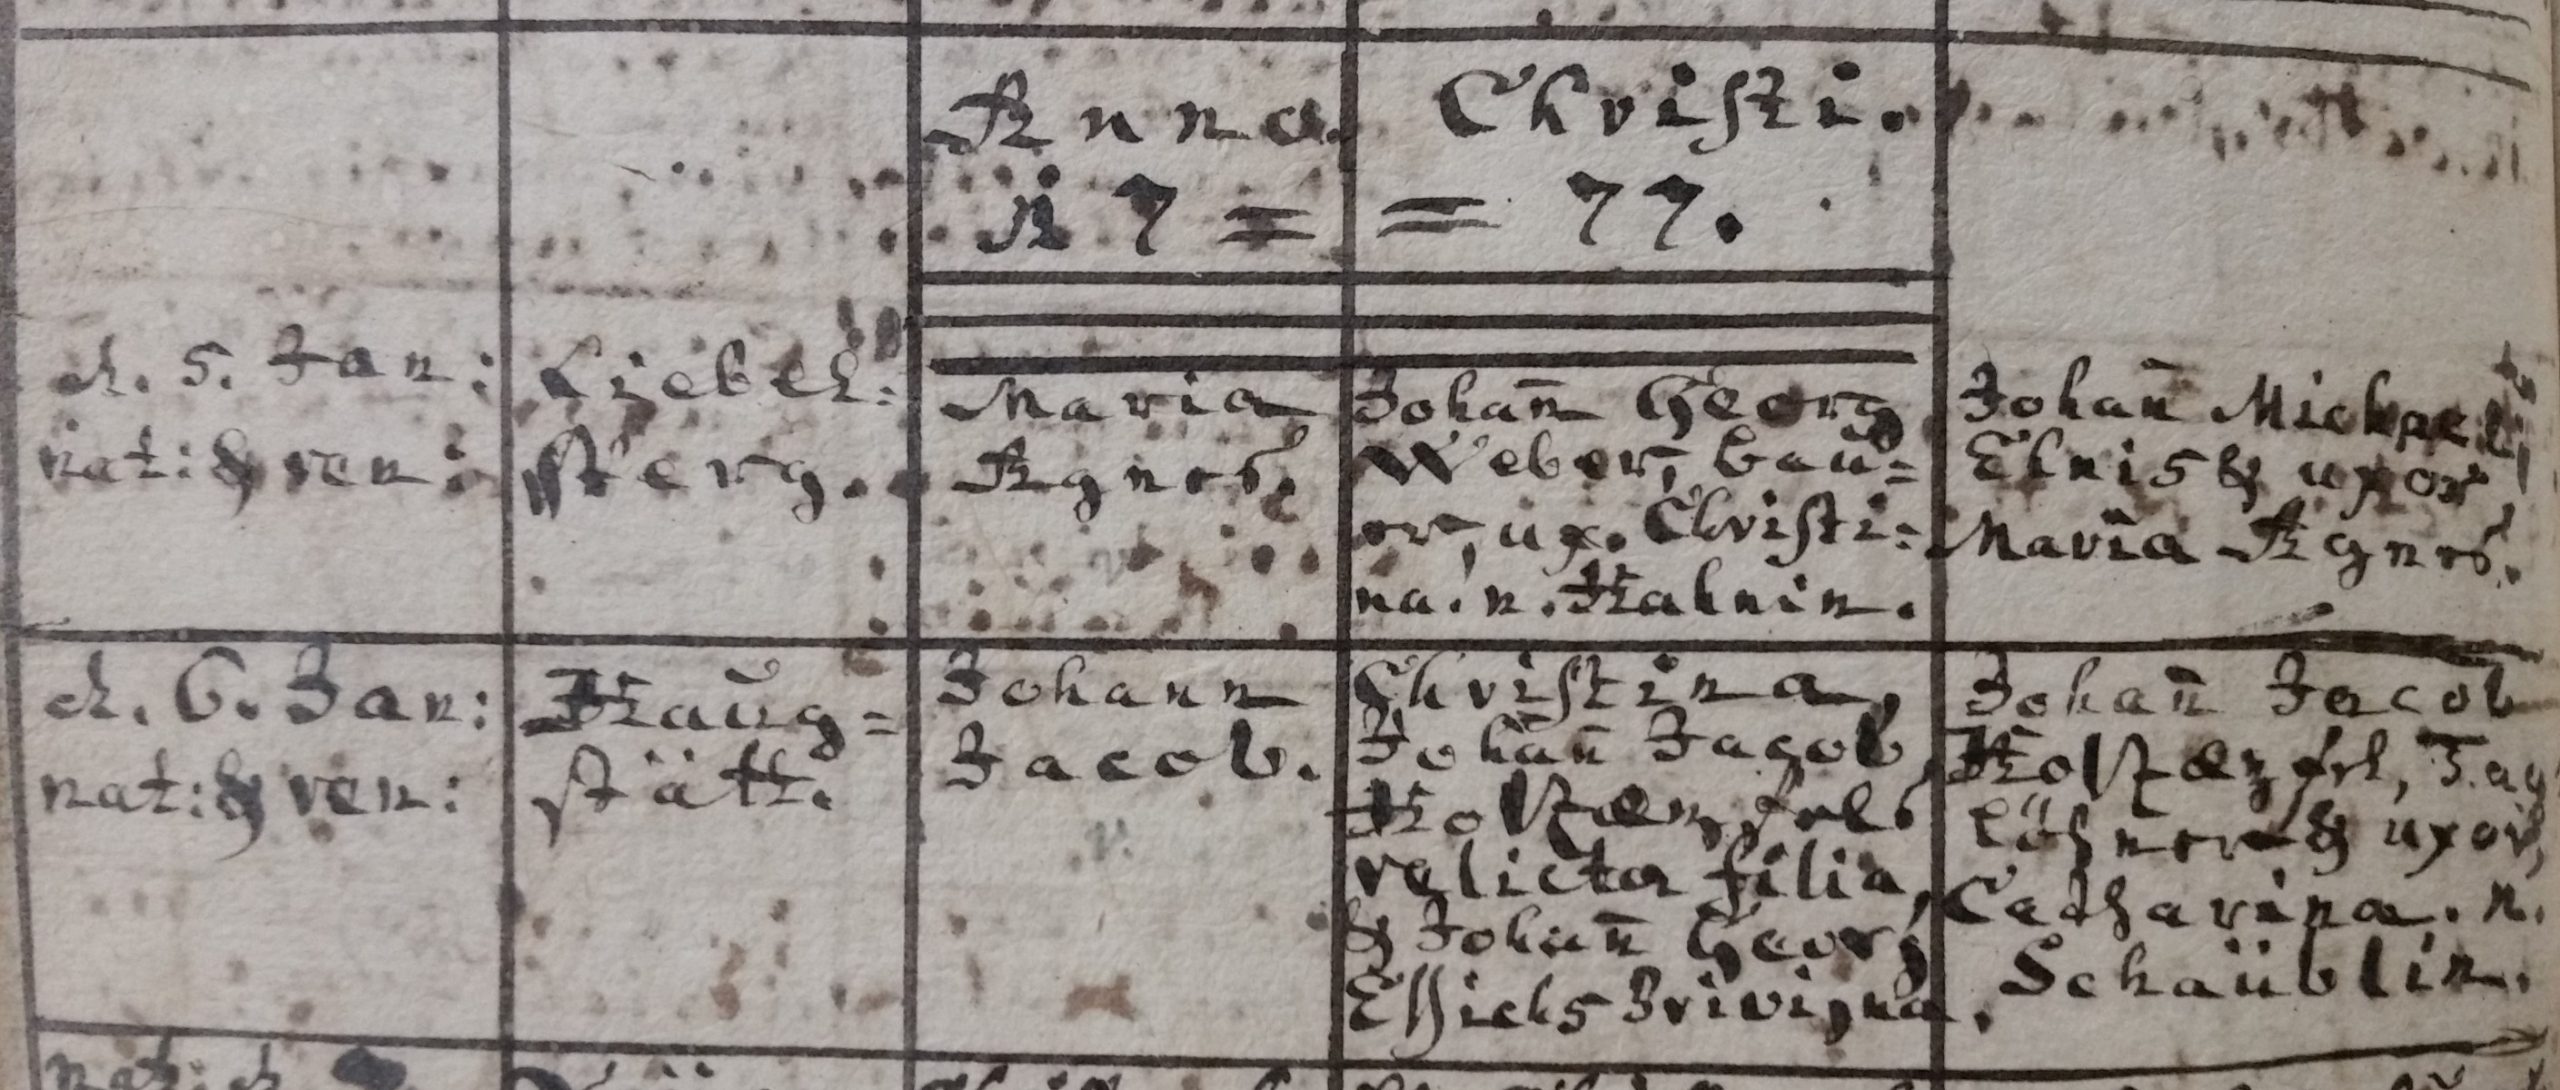 Anno Christi.
17 = = 77.
d. 5. Jan:
nat: & ren:
Liebel:
sperg.
Maria
Agnes.
Johan̄ Georg
Weber, bau=
er, ux. Christi=
na. n. Hahnin.
Johan̄ Michael
& uxor
Maria Agnes.
d. 6. Jan:
nat: & ren:
Haŭg=
stätt.
Johann
Jacob.
Christina,
Johan̄ Jacob
Holtzæpfels
relicta filia,
& Johan̄ Georg
Essichs Privigna.
Johan̄ Jacob
Holtzæpfel, Tag
löhner & uxor,
Catharina. n.
Schäüblin.